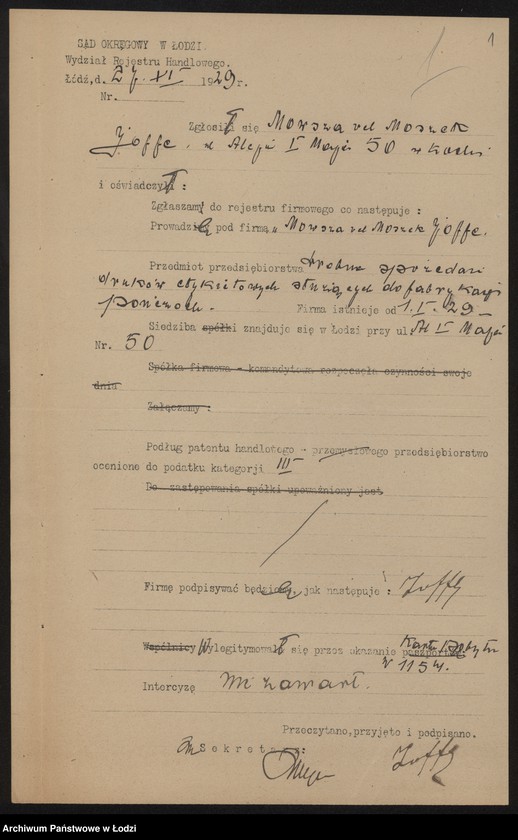 1
SĄD OKRĘGOWY W ŁODZI.
Wydział Rejestru Handlowego.
Łódź,d. 27. XI 1929 r.
Nr.
Zgłosił się Mowsza vel Moszek
Joffe. Aleja I Maja 50 w Łodzi
i oświadczył :
Zgłaszam do rejestru firmowego co następuje :
Prowadzi pod firmą „Mowsza vel Moszek Joffe.
Przedmiot przedsiębiorstwa drobna sprzedaż
druków etykietowych służących do fabrykacji
pończoch. Firma istnieje od 1.I. 29
Siedziba spółki znajduje się w Łodzi przy ul. Al I Maja
Nr. 50
Spółka firmowa - komandytowa rozpoczęła czynności swoje
dnia
Załączamy :
Podług patentu handlowego - przemysłowego przedsiębiorstwo
ocenione do podatku kategorji III
Do zastępowania spółki upoważniony jest
Firmę podpisywać będzie, jak następuje : Joffe
Wspólnicy Wylegitymował się przez ukazanie paszportu Karta Pobytu
N 115
Intercyzę nie zawarł.
Przeczytano, przyjęto i podpisano.
Sekretarz :
Joffe
Archiwum Państwowe w Łodzi